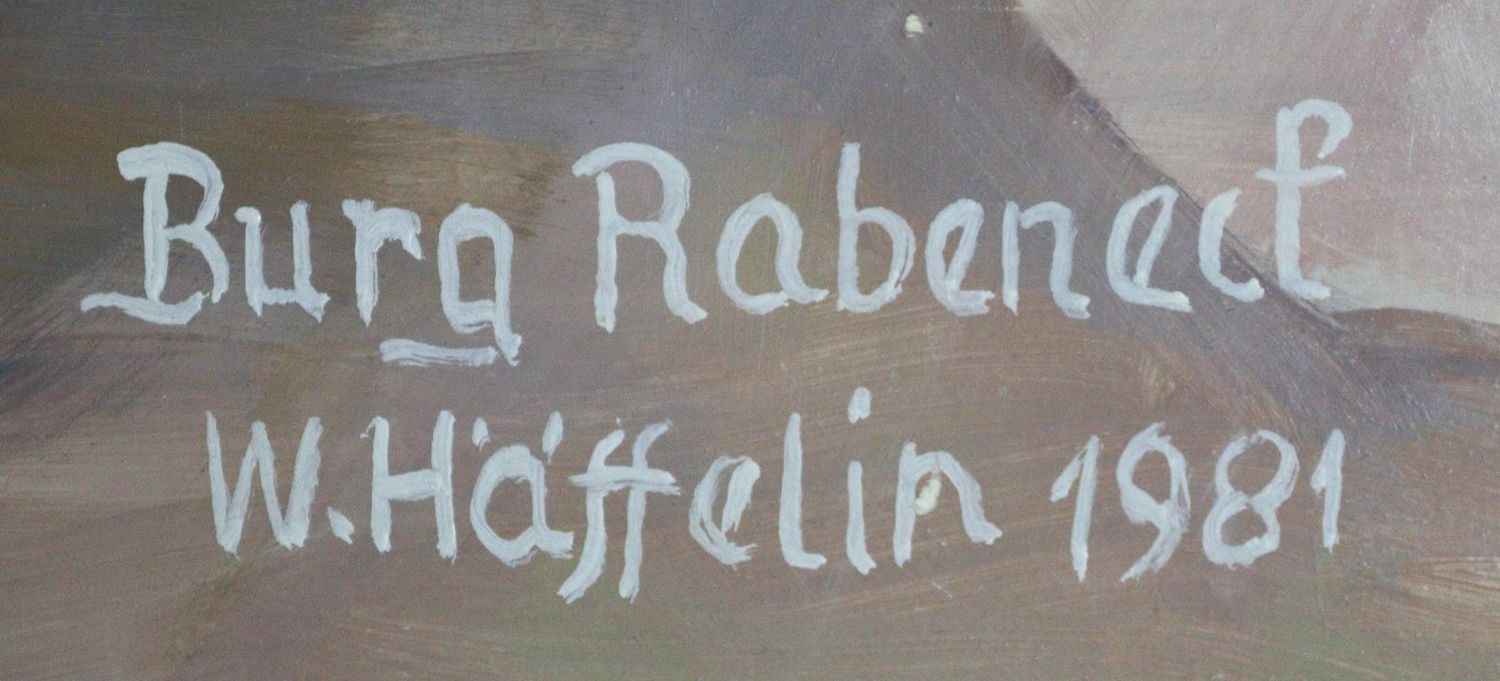 Burg Rabeneck
W. Häffelin 1981